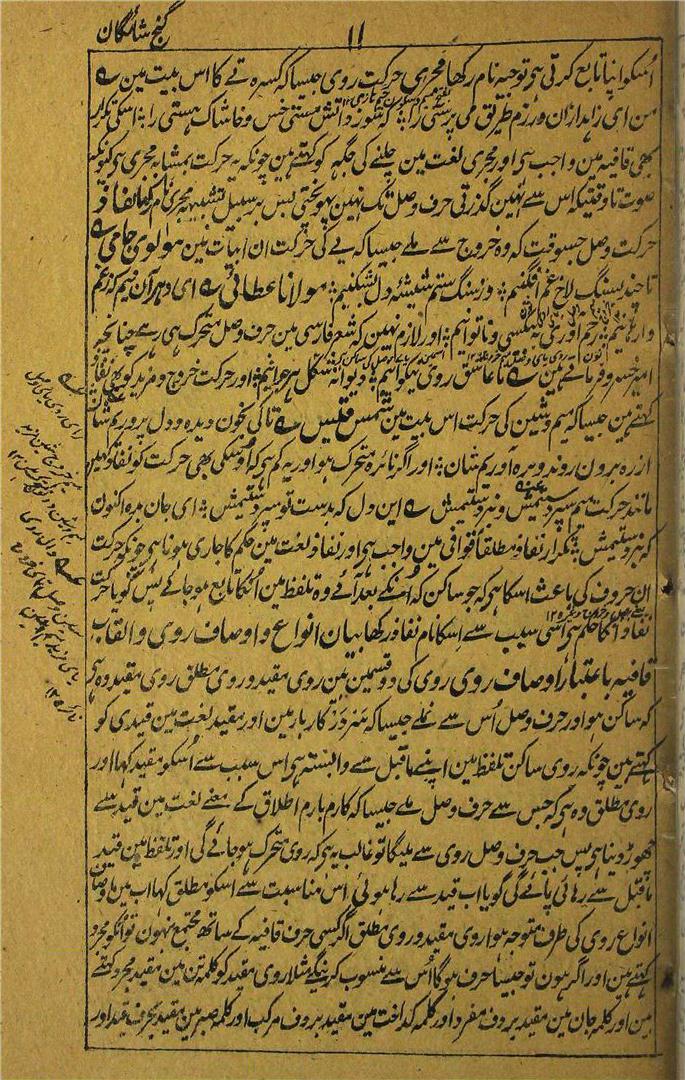 گنج شائگان
۱۱
اُسکو اپنا تابع کرتی ہی توجیہ نام رکھا مجری حرکت روی جیسا کہ کسرہ تے کا اس بیت مین ے
من ای زاہد ازان ورزم طریق می پرستی را کہ سوزد آتش مستی خس و خاشاک ہستی را اسکی تکرار
بھی قافیہ مین واجب ہی اور مجری لغت مین چلنے کی جگہ کو کہتے ہین چونکہ یہ حرکت بمشابہ مجری ہی کیونکہ
صوت تا وقتیکہ اس سے نہین گذرتی حرف وصل تک نہین پہونچتی پس بر سبیل تشبیہ مجری نام رکھا نفاذ
حرکت وصل جسوقت کہ وہ خروج سے ملے جیسا کہ یے کی حرکت ان ابیات مین مولوی جامی ے
تا چند بسنگ لاخ غم افگنیم وز سنگ ستم شیشۂ دل شکنیم مولانا عطائی ے ای دہر آن نیم کہ زغم
وارہانیم رحم آور کہ بیکسی و ناتوانیم اور لازم نہین کہ شعر فارسی مین حرف وصل متحرک ہی رہے چنانچہ
امیر خسرو فرماتے ہین ے ما عاشق روی نیکوانیم دیوانۂ شکل ہر جوانیم اور حرکت خروج و مزید کو بھی نفاذ
کہتے ہین جیسا کہ میم و شین کی حرکت اس بیت مین شمس قیس ے تا کی بخون دیدہ و دل پروریم شان
از رہ برون روند و برہ آوریم شان اور اگر نائرہ متحرک ہو اور یہ کم ہی کہ اُسکی بھی حرکت کو نفاذ کہین
مانند حرکت میم سپردستیمش و نبردستیمش ے این دل کہ بدست تو سپردستیمش ای جان بدہ اکنون
کہ نبردستیمش تکرار نفاذ مطلقا قوافی مین واجب ہی اور نفاذ لغت مین حکم کا جاری ہونا ہی چونکہ حرکت
ان حروف کی باعث اسکا ہی کہ جو ساکن کہ اُنکے بعد آئے وہ تلفظ مین اُنکا تابع ہو جائے پس گویا حرکت
نفاذ اُنکا حکم ہی اسی سبب سے اسکا نام نفاذ رکھا بیان انواع و اوصاف روی و القاب
قافیہ باعتبار اوصاف روی روی کی دو قسمین ہین روی مقید و روی مطلق روی مقید وہ ہی
کہ ساکن ہو اور حرف وصل اُس سے نملے جیسا کہ کار بار مین اور مقید لغت مین قیدی کو
کہتے ہین چونکہ روی ساکن تلفظ مین اپنے ماقبل سے وابستہ ہی اس سبب سے اُسکو مقید کہا اور
روی مطلق وہ ہی کہ جس سے حرف وصل ملے جیسا کہ کارم بارم اطلاق کے معنے لغت مین قید سے
چھوڑ دینا ہی پس جب حرف وصل روی سے ملیگا تو غالب یہ ہی کہ روی متحرک ہو جائے گی اور تلفظ مین قید
ماقبل سے رہائی پائے گی گویا اب قید سے رہا ہوئی اس مناسبت سے اسکو مطلق کہا اب مین باوصاف
انواع روی کی طرف متوجہ ہوا روی مقید و روی مطلق اگر کسی حرف قافیہ کے ساتھ مجتمع نہون تو انکو مجرد
کہتے ہین اور اگر ہون تو جیسا حرف ہوگا اُس سے منسوب کرینگے مثلا روی مقید کو کلمہ تن مین مقید مجرد کہتے
ہین اور کلمہ جان مین مقید بردف مفرد اور کلمہ گداخت مین مقید بردف مرکب اور کلمہ صبر مین مقید بحرف قید اور